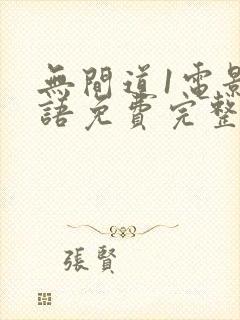 無間道1電影
語免費完整
張賢